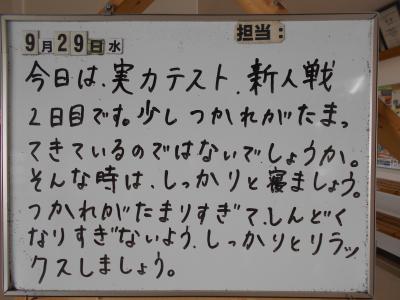 9月29日水
担当:
今日は、実力テスト、新人戦
2日目です。少しつかれがたまっ
てきているのではないでしょうか。
そんな時は、しっかりと寝ましょう。
つかれがたまりすぎて、しんどく
なりすぎないよう、しっかりとリラッ
クスしましょう。